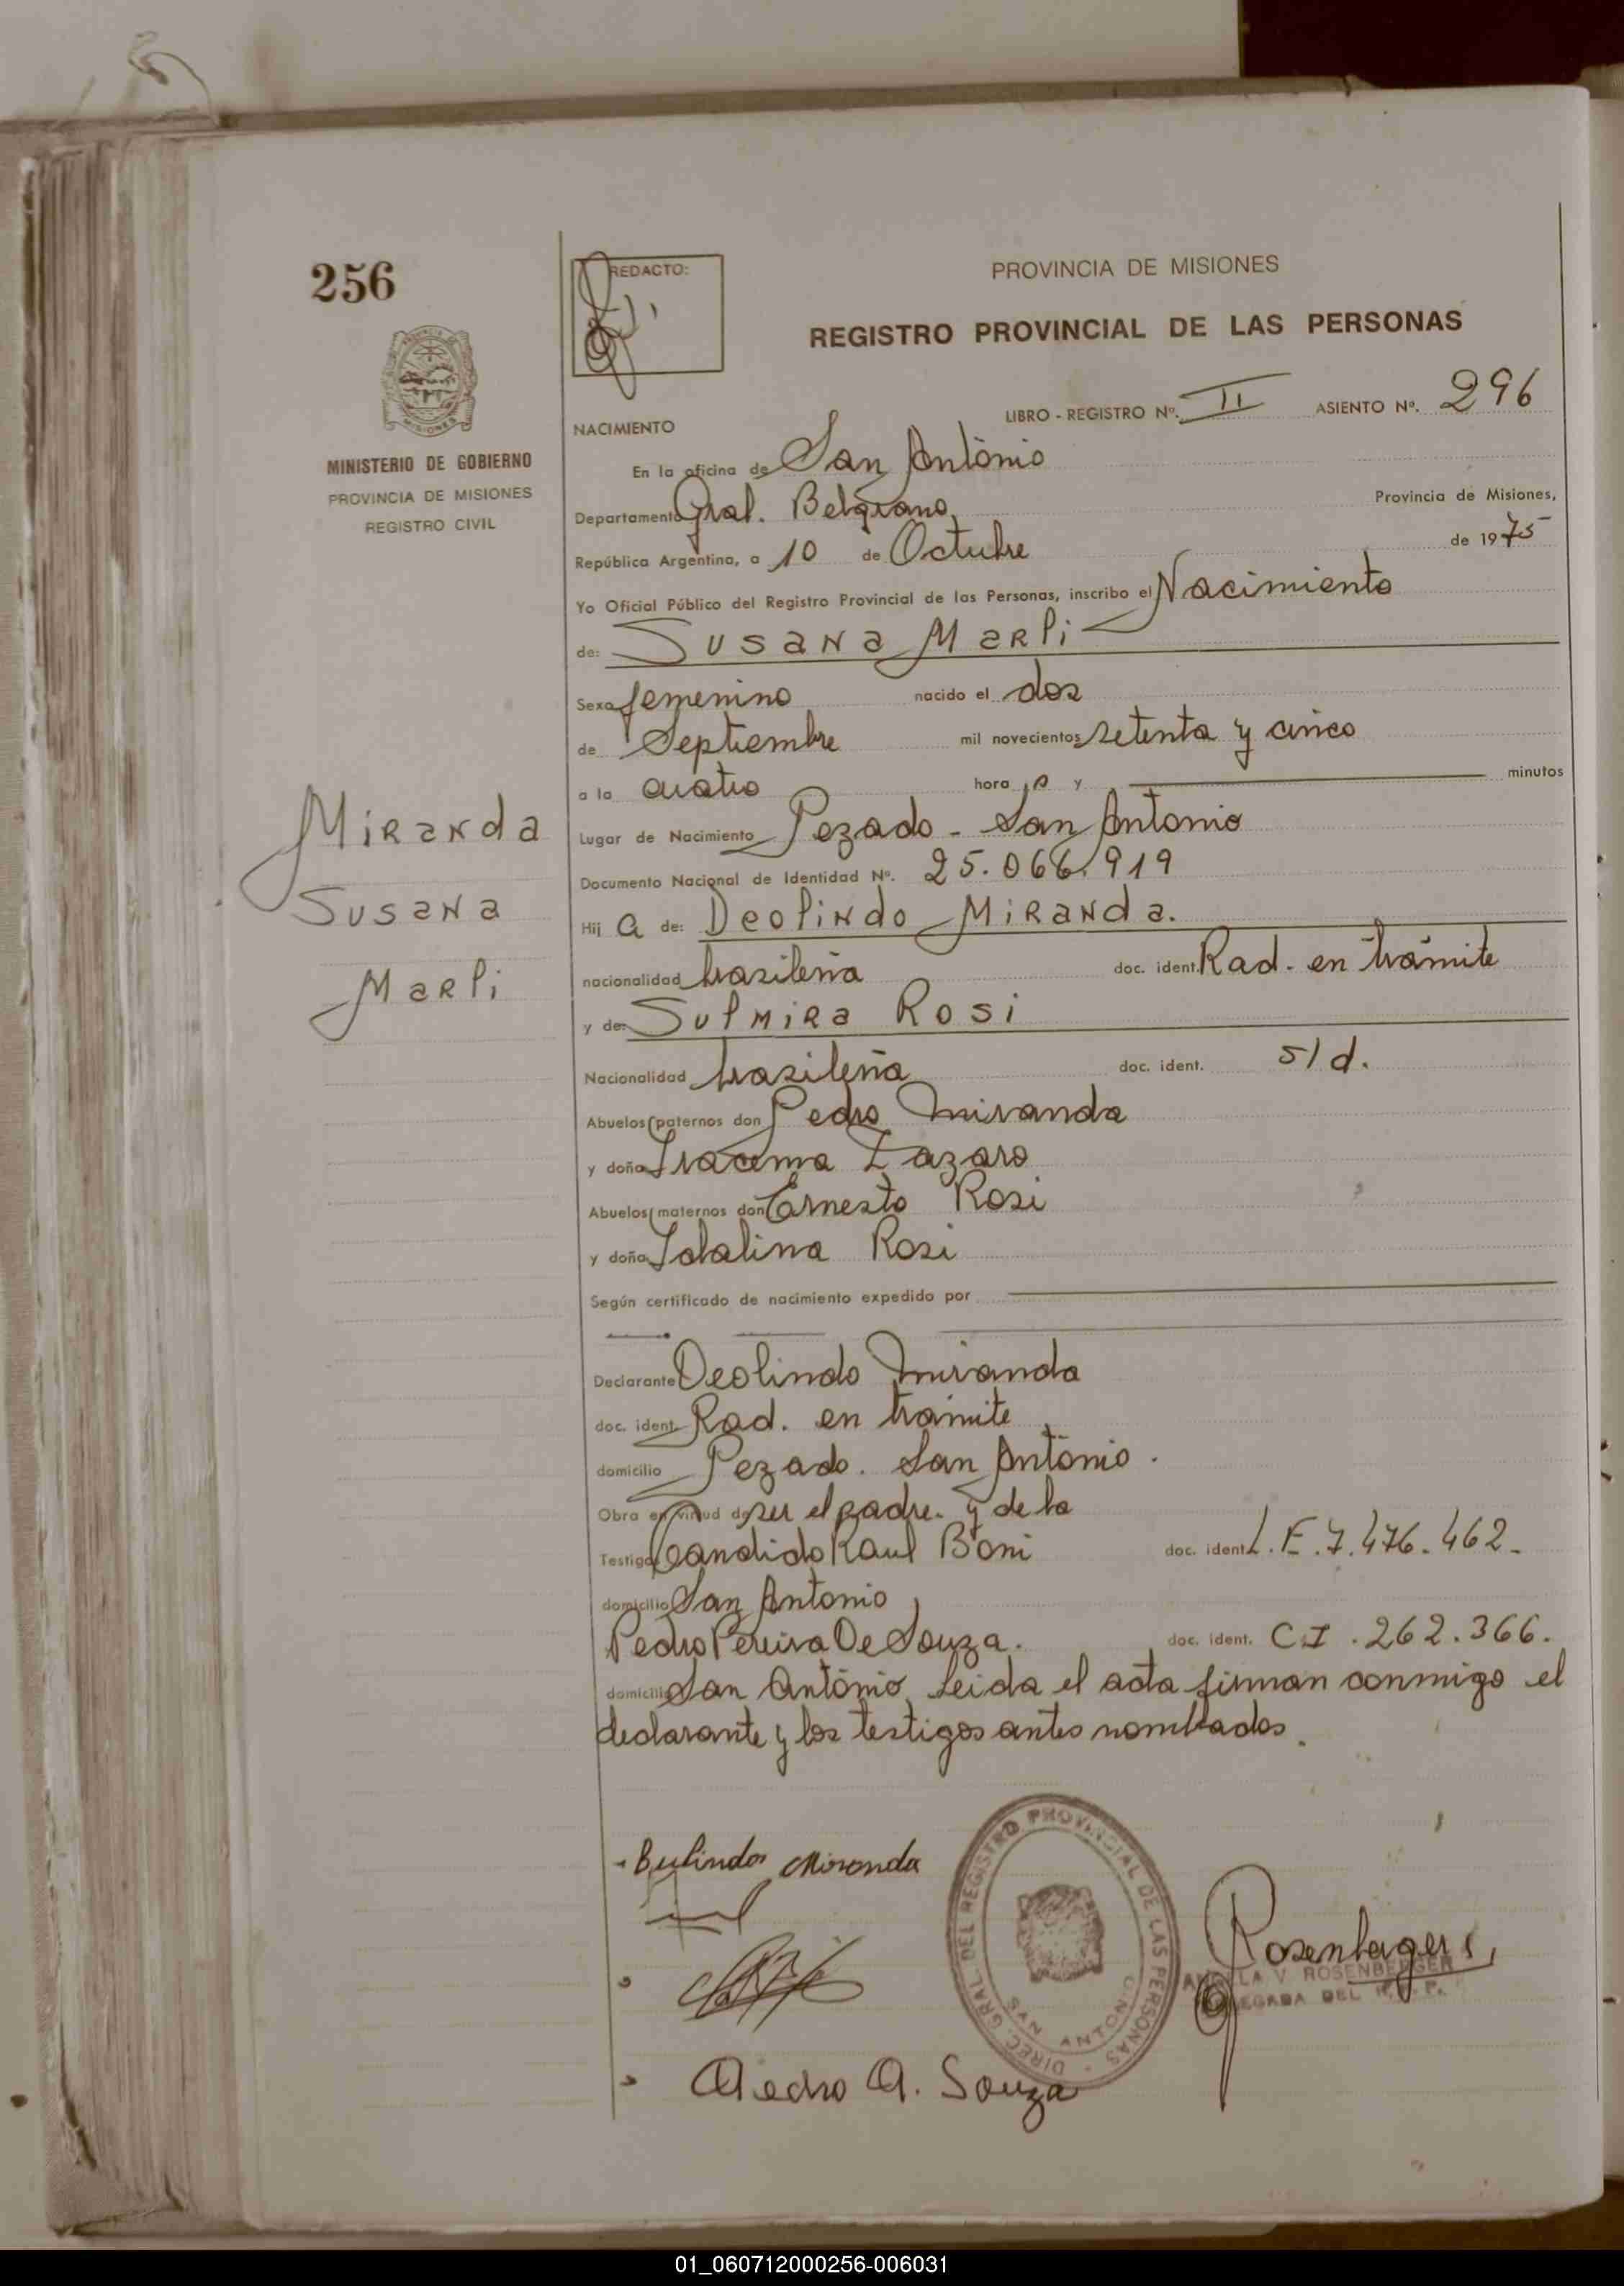 256
REDACTO:
PROVINCIA DE MISIONES
REGISTRO PROVINCIAL DE LAS PERSONAS
MINISTERIO DE GOBIERNO
PROVINCIA DE MISIONES
REGISTRO CIVIL
LIBRO - REGISTRO Nº. II ASIENTO Nº. 296
NACIMIENTO
En la oficina de San Antonio
Departamento Gral. Belgrano Provincia de Misiones,
República Argentina, a 10 de Octubre de 1975
Yo Oficial Público del Registro Provincial de las Personas, inscribo el Nacimiento
de: Susana Marli
Sexo femenino nacido el dos
de Septiembre mil novecientos setenta y cinco
a la cuatro hora s y minutos
Lugar de Nacimiento Pezado - San Antonio
Documento Nacional de Identidad Nº. 25.066.919
Hij a de: Deolindo Miranda.
nacionalidad brasileña doc. ident. Rad. en trámite
y de: Sulmira Rosi
Nacionalidad brasileña doc. ident. s/d.
Abuelos paternos don Pedro Miranda
y doña Iracema Lazaro
Abuelos maternos don Ernesto Rosi
y doña Idalina Rosi
Según certificado de nacimiento expedido por
Declarante Deolindo Miranda
doc. ident. Rad. en trámite
domicilio Pezado. San Antonio.
Obra en virtud de ser el padre. y de la
Testigo Candido Raul Boni doc. ident. L.E.7.476.462-
domicilio San Antonio
Pedro Pereira De Souza. doc. ident. C.I.262.366.
domicilio San Antonio, Leida el acta firman conmigo el
declarante y los testigos antes nombrados.
Miranda
Susana
Marli
Miranda
DIREC. GRAL. DEL REGISTRO PROVINCIAL DE LAS PERSONAS
SAN ANTONIO
Rosenberger
V. ROSENBERGER
DEL
Souza
01_060712000256-006031